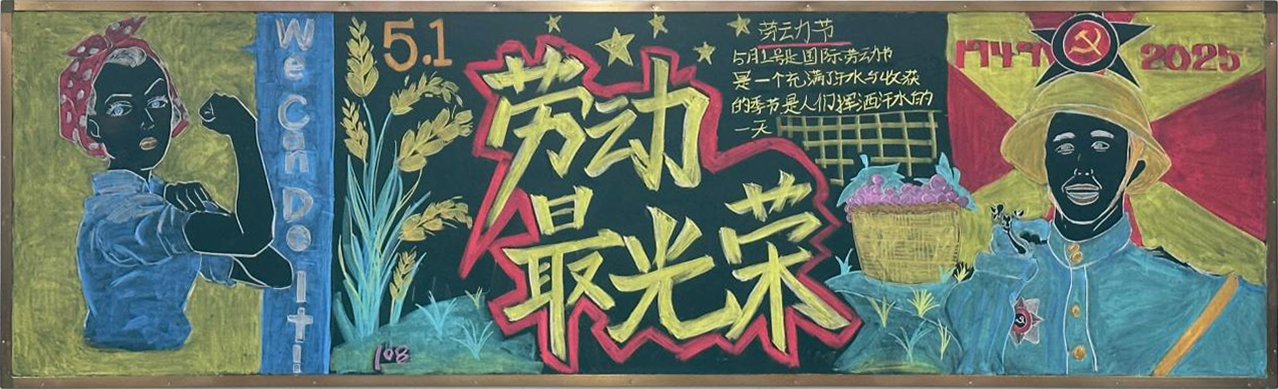 We Can Do It!
5.1
劳动
最光荣
劳动节
5月1号是国际劳动节
是一个充满了汗水与收获
的季节是人们挥洒汗水的
一天
1949 2025
108